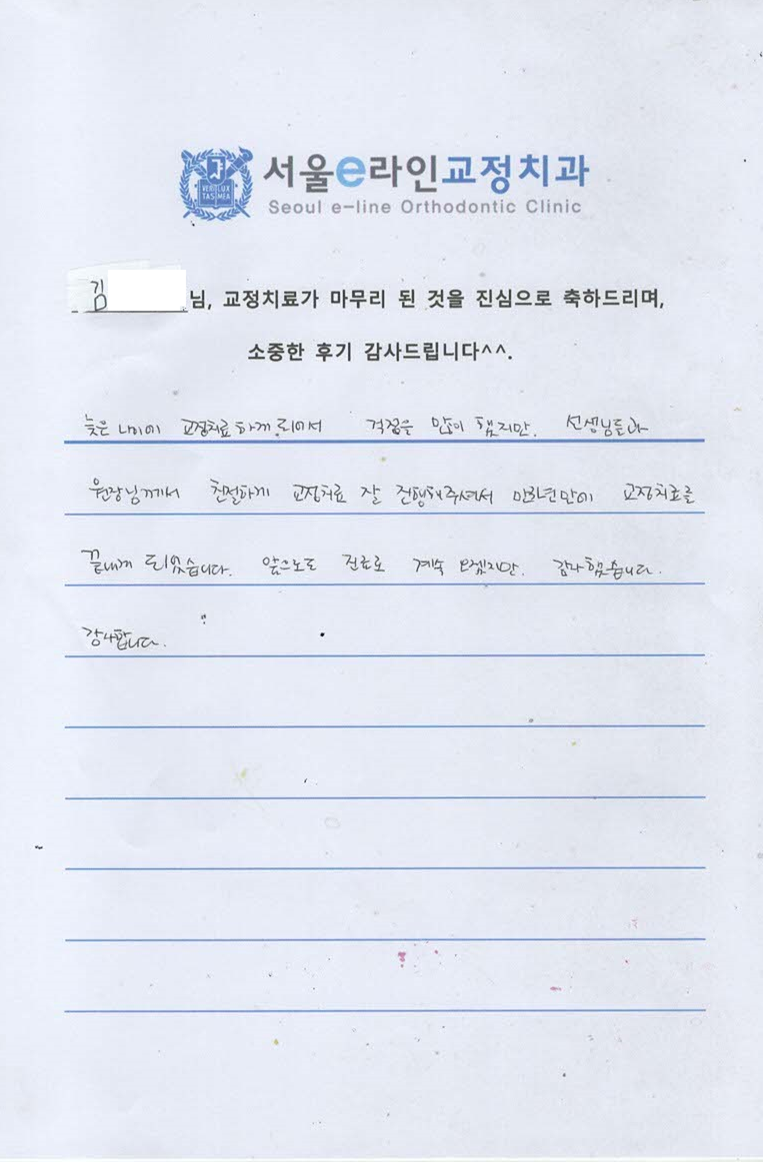 서울e라인교정치과
Seoul e-line Orthodontic Clinic
VERI LUX
TAS MEA
김 님, 교정치료가 마무리 된 것을 진심으로 축하드리며,
소중한 후기 감사드립니다^^.
늦은 나이에 교정치료하게 되어서 걱정을 많이 했지만. 선생님들과
원장님께서 친절하게 교정치료 잘 진행해주셔서 교정치료를
끝내게 되었습니다. 앞으로도 진료로 계속 오겠지만. 감사했습니다.
감사합니다.